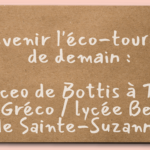 venir l'éco-tour
de demain :
ceo de Bottis à T
Gréco / lycée Be
le Sainte-Suzann